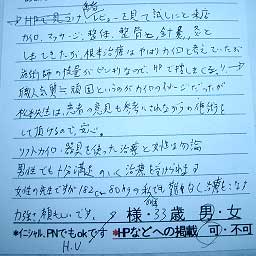 HPで見つけ、レビューを見て試しに来店
カイロ、マッサージ、整体、整骨、針灸、など
しましてきたが、根本治療はやはりカイロと考えていたが
施術師の技量がピンキリなので、HPで探しまくる。
職人気質=頑固というのがカイロのイメージだったが
先生は、患者の意見も参考にされながらの施術を
して頂けるので、安心。
ソフトカイロ、器具を使った治療と女性は勿論
男性でも十分満足のいく治療を受けられます
女性の先生ですが182cm 80kgの私でも難なく治療をこなす
力強さ頼もしいです。
様・33歳 男・女
*イニシャル、PNでもokです *HPなどへの掲載 可・不可
H.U